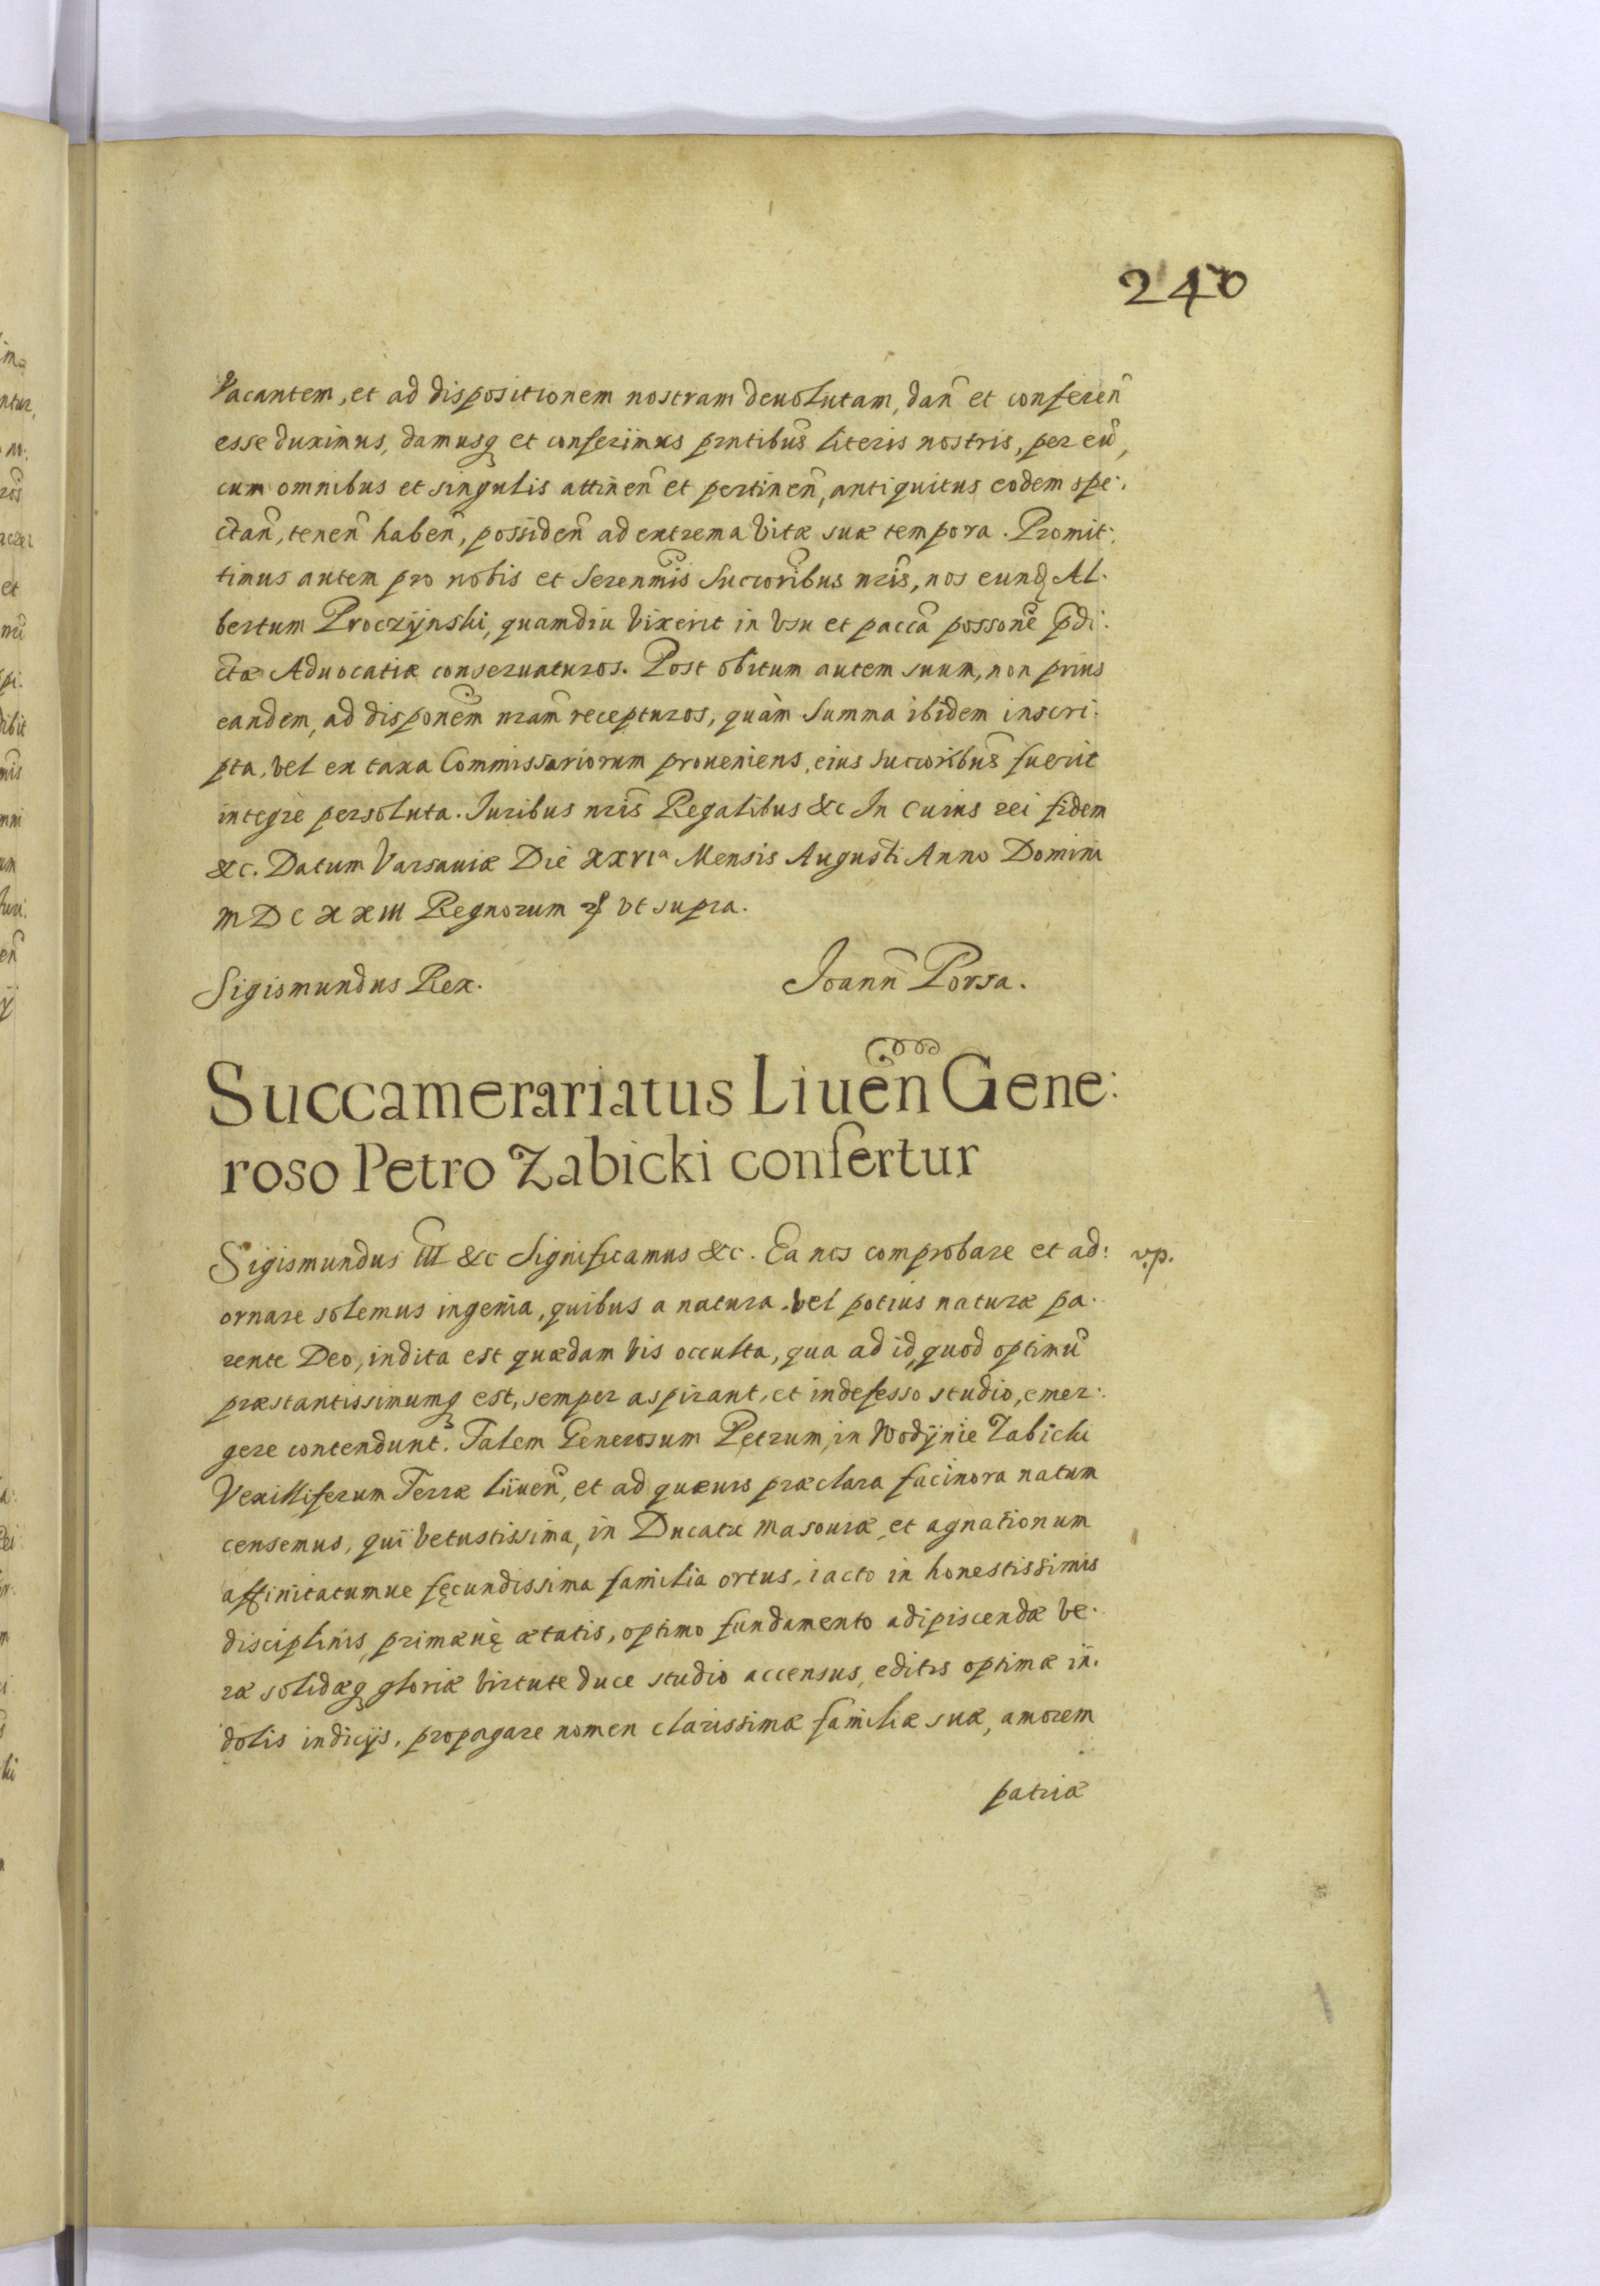 240
Vacantem, et ad dispositionem nostram deuolutam, dañ et confereñ
esse duximus, damusq et conferimus pr̃ntibus literis nostris, per eũ,
cum omnibus et singulis attineñ et pertineñ, antiquitus eodem spe:
ctañ, teneñ habeñ, possideñ ad extrema vitæ suæ tempora. Promit:
timus autem pro nobis et Serenm̃is Succoribus nr̃is, nos eundẽ Al:
bertum Proczÿnski, quamdiu vixerit in vsu et paccã possonẽ p̃di:
ctæ Aduocatiæ conseruaturos. Post obitum autem suum, non prius
eandem, ad disponẽm nrãm recepturos, quàm Summa ibidem inscri:
pta, vel ex taxa Commissariorum proueniens, eius succoribus fuerit
integre persoluta. Iuribus nr̃is Regalibus &c In cuius rei fidem
&c. Datum Varsauiæ Die XXVIa Mensis Augusti Anno Domini
MDCXXIII Regnorum ꝝ vt supra.
Sigismundus Rex. Joann̄ Porsa.
Succamerariatus Liueñ Gene:
roso Petro Zabicki confertur
Sigismundus III &c Significamus &c. Ea nos comprobare et ad: v.p.
ornare solemus ingenia, quibus a natura vel potius naturæ pa:
rente Deo, indita est quædam vis occulta, qua ad id, quod optimũ
præstantissimumq est, semper aspirant, et indefesso studio, emer:
gere contendunt. Talem Generosum Petrum, in Wodÿnie Zabicki
Vexilliferum Terræ Liueñ, et ad quæuis præclara facinora natum
censemus, qui vetustissima, in Ducatu Masouiæ, et agnationum
affinitatumue fęcundissima familia ortus, iacto in honestissimis
disciplinis, primæuę ætatis, optimo fundamento adipiscendæ ve:
ræ solidæq gloriæ virtute duce studio accensus, editis optimæ in:
dolis indicijs, propagare nomen clarissimæ familiæ suæ, amorem
patriæ